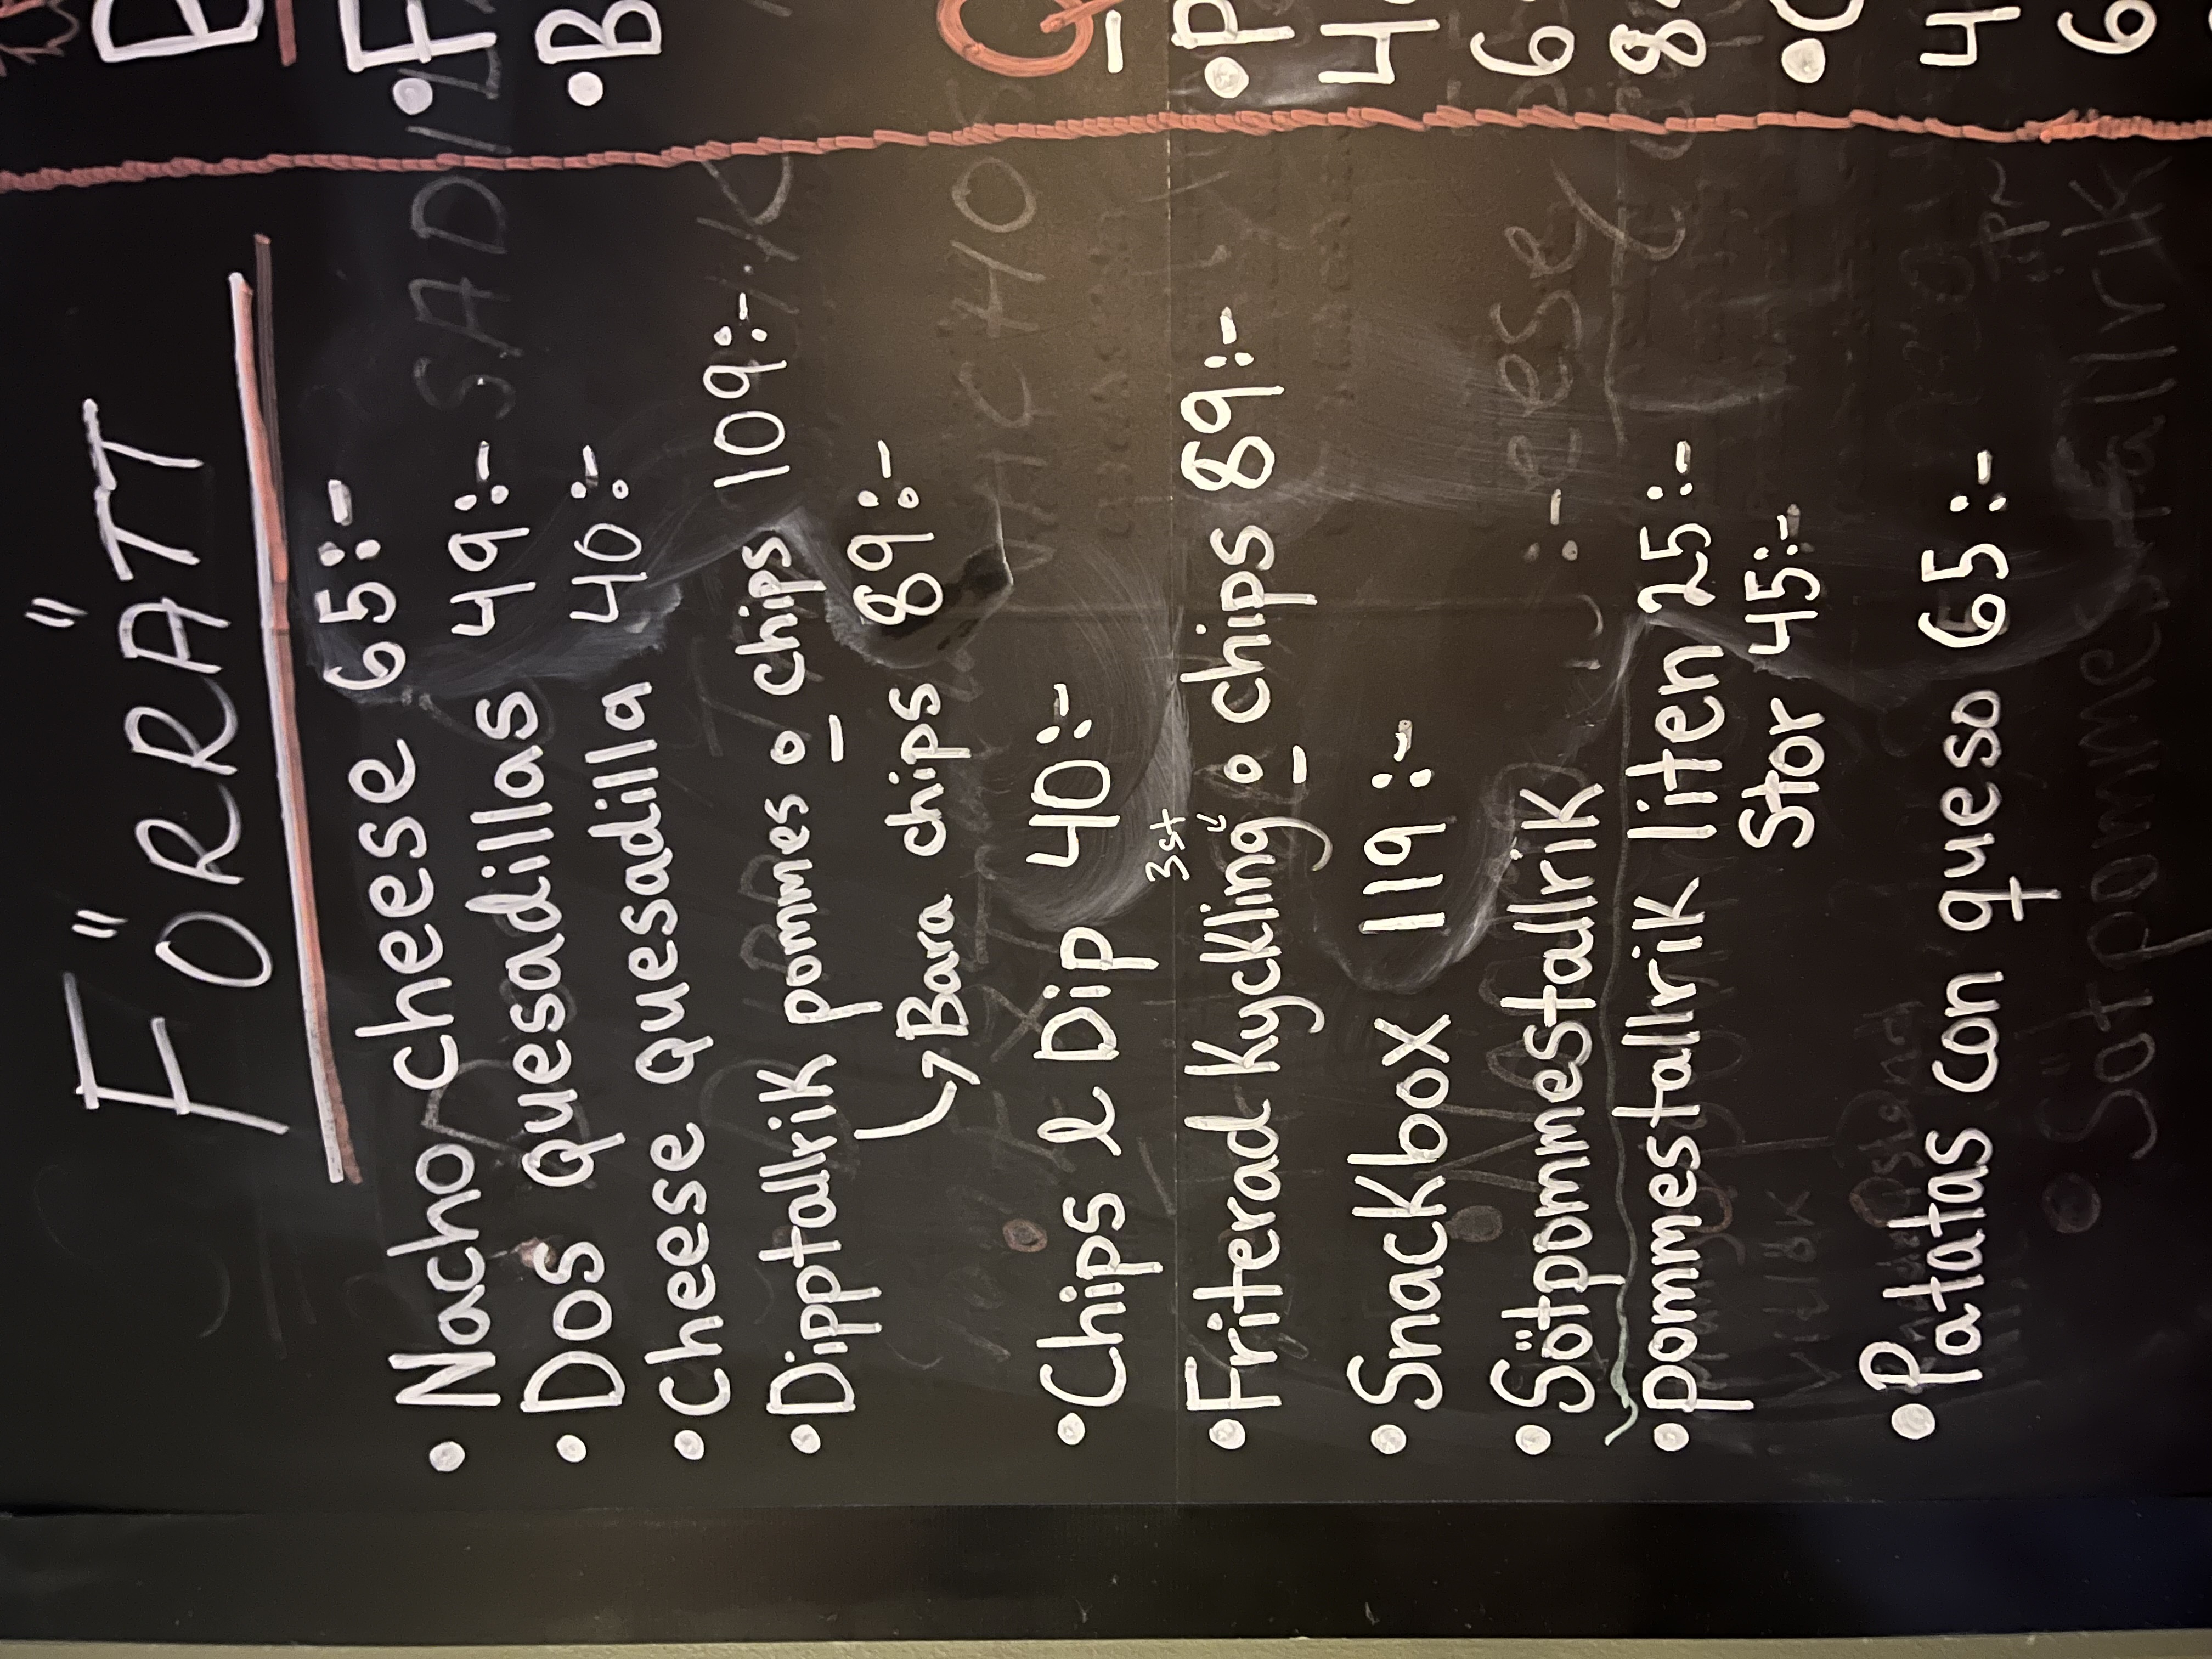 FÖRRÄTT
• Nacho cheese 65:-
• Dos quesadillas 49:-
• Cheese quesadilla 40:-
• Dipptallrik pommes o chips 109:-
↳ Bara chips 89:-
• Chips & Dip 40:-
3st
• Friterad Kyckling o chips 89:-
• Snackbox 119:-
• Sötpommestallrik
• pommestallrik liten 25:-
Stor 45:-
• Patatas con queso 65:-